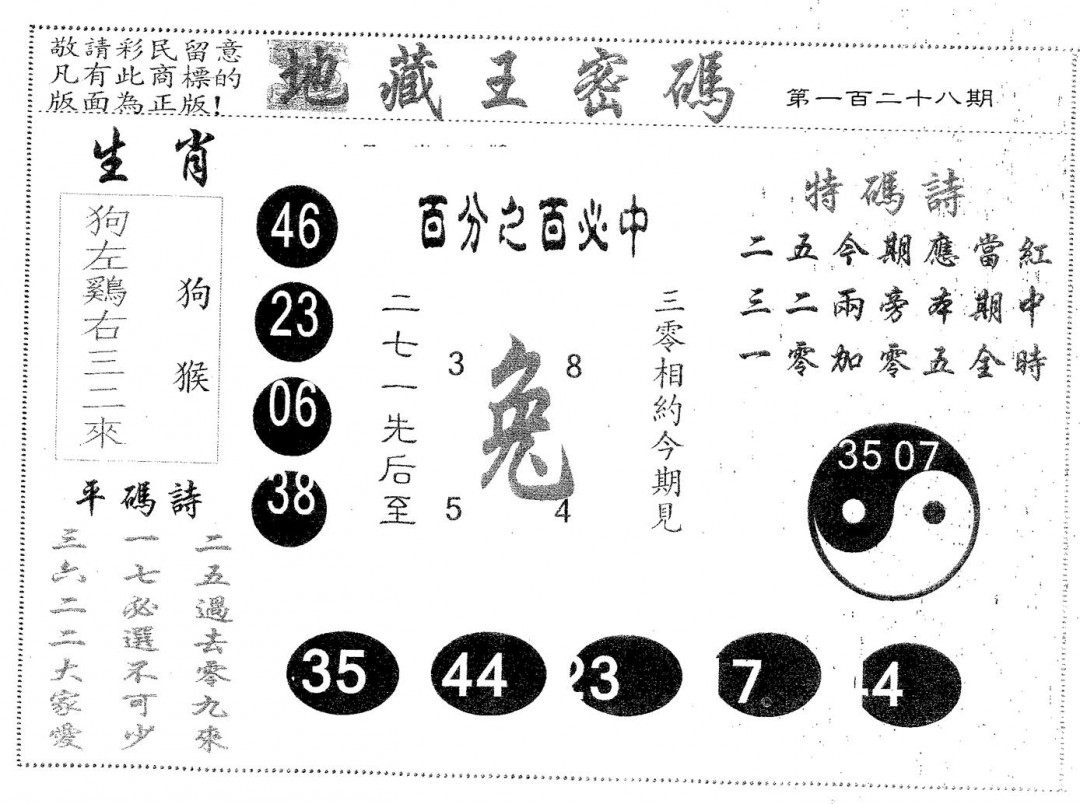 敬請彩民留意
凡有此商標的
版面為正版!
地藏王密碼
第一百二十八期
生肖
狗左鷄右三二來
狗猴
46
23
06
38
百分之百必中
二七一先后至
3
8
兔
5
4
三零相約今期見
特碼詩
二五今期應當紅
三二兩旁本期中
一零加零五全時
35 07
平碼詩
二五過去零九來
一七必選不可少
三六二二大家愛
35
44
23
7
44